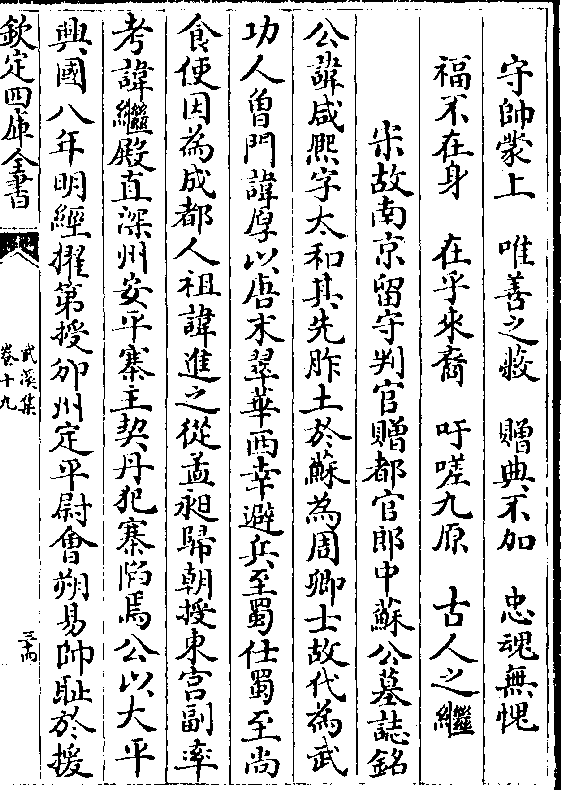 守帥蒙上　唯善之酸　贈典不加　忠魂無愧
福不在身　在乎來裔　吁嗟九原　古人之繼
宋故南京留守判官贈都官郎中蘇公墓誌銘
公諱咸熙字太和其先胙土於蘇為周卿士故代為武
功人曾門諱厚以唐末翠華西幸避兵至蜀仕蜀至尚
食使因為成都人祖諱進之從孟昶歸朝授東宮副率
考諱繼殿直深州安平寨主契丹犯寨陷焉公以大平
興國八年明經擢第授邠州定平尉會朔易帥耻於援
欽定四庫全書
武溪集
卷十九
三十四